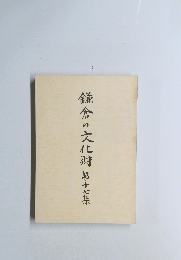 鎌倉の文化財 第十七集